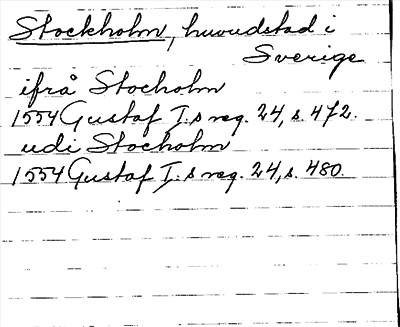 Stockholm, huvudstad i
Sverige
ifrå Stocholm
1554 Gustaf I.s reg. 24, s. 472.
udi Stocholm
1554 Gustaf I.s reg. 24, s. 480.